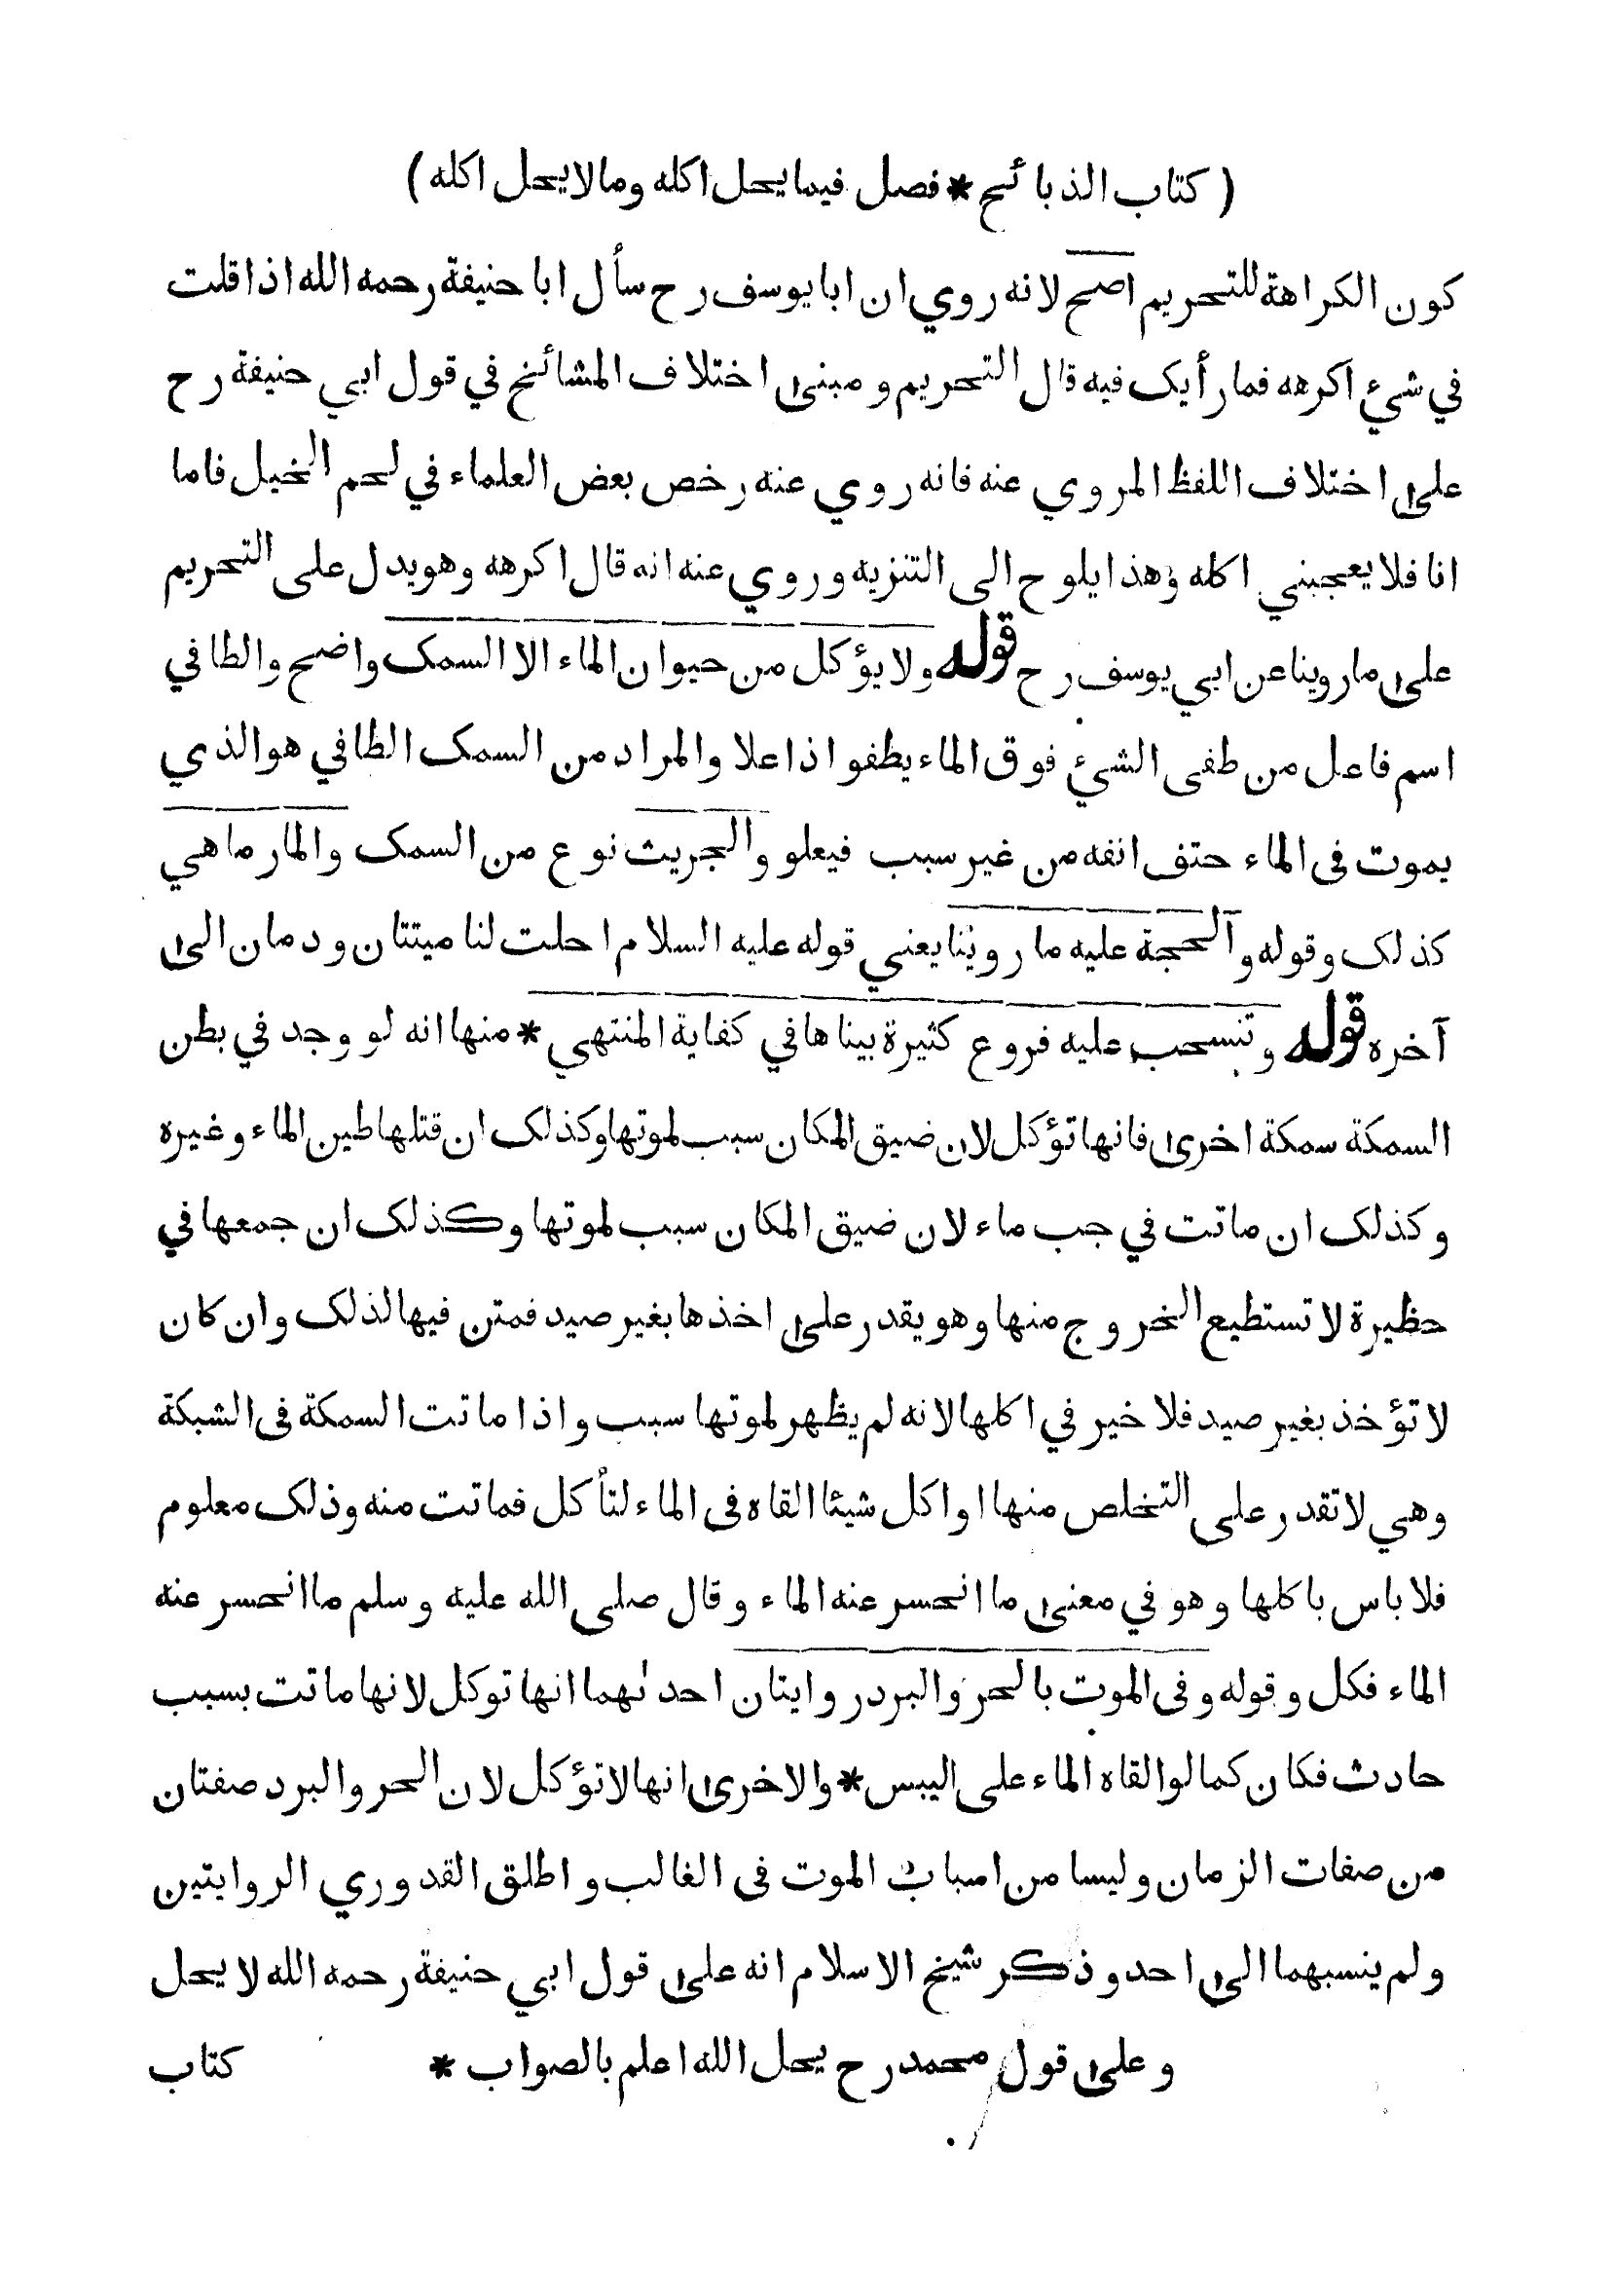 ( كتاب الذبائح * فصل فيما يحل اكله وما لا يحل اكله )
كون الكراهة للتحريم اصح لانه روي ان ابا يوسف رح سأل ابا حنيفة رحمه الله اذا قلت
في شيء اكرهه فما رأيك فيه قال التحريم و مبنى اختلاف المشائخ في قول ابي حنيفة رح
على اختلاف اللفظ المروي عنه فانه روي عنه رخص بعض العلماء في لحم الخيل فاما
انا فلا يعجبني اكله وهذا يلوح الى التنزيه وروي عنه انه قال اكرهه وهو يدل على التحريم
على ما روينا عن ابي يوسف رح قوله ولا يؤكل من حيوان الماء الا السمك واضح والطافي
اسم فاعل من طفى الشيء فوق الماء يطفو اذا علا والمراد من السمك الطافي هو الذي
يموت في الماء حتف انفه من غير سبب فيعلو والجريث نوع من السمك والمارماهي
كذلك وقوله والحجة عليه ما روينا يعني قوله عليه السلام احلت لنا ميتتان ودمان الى
آخره قوله وتنسحب عليه فروع كثيرة بيناها في كفاية المنتهي * منها انه لو وجد في بطن
السمكة سمكة اخرى فانها تؤكل لان ضيق المكان سبب لموتها وكذلك ان قتلها طين الماء وغيره
وكذلك ان ماتت في جب ماء لان ضيق المكان سبب لموتها وكذلك ان جمعها في
حظيرة لا تستطيع الخروج منها وهو يقدر على اخذها بغير صيد فمتن فيها لذلك وان كان
لا تؤخذ بغير صيد فلا خير في اكلها لانه لم يظهر لموتها سبب واذا ماتت السمكة في الشبكة
وهي لا تقدر على التخلص منها او اكل شيئا القاه في الماء لتأكل فماتت منه وذلك معلوم
فلا باس باكلها وهو في معنى ما انحسر عنه الماء وقال صلى الله عليه وسلم ما انحسر عنه
الماء فكل وقوله وفي الموت بالحر والبرد روايتان احدٰىهما انها توكل لانها ماتت بسبب
حادث فكان كما لو القاه الماء على اليبس * والاخرى انها لا تؤكل لان الحر والبرد صفتان
من صفات الزمان وليسا من اسباب الموت في الغالب و اطلق القدوري الروايتين
ولم ينسبهما الى احد وذكر شيخ الاسلام انه على قول ابي حنيفة رحمه الله لا يحل
وعلى قول محمد رح يحل الله اعلم بالصواب *
كتاب